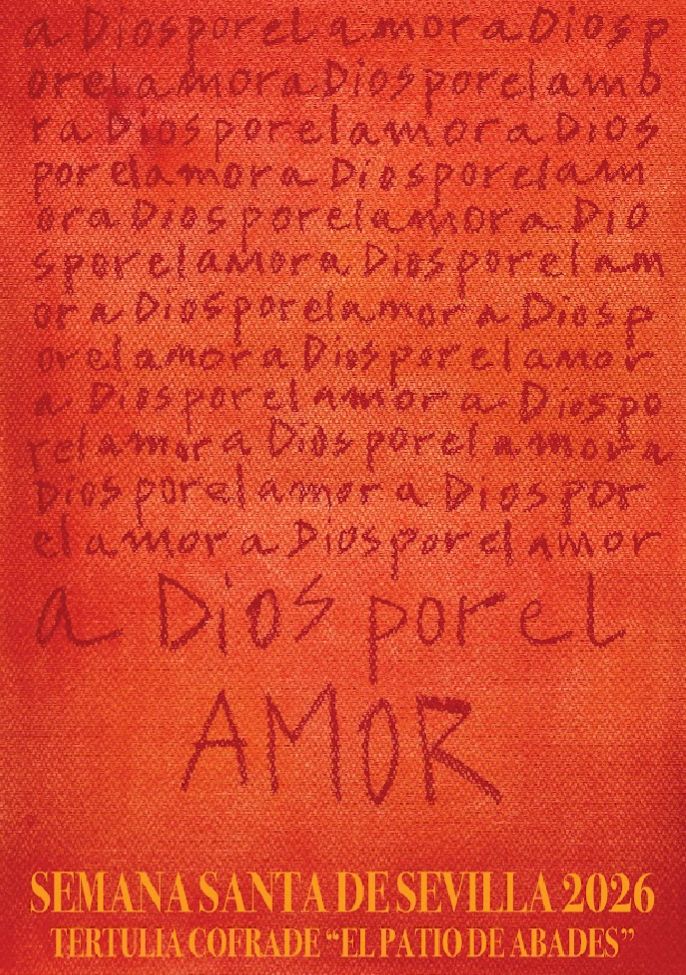 a Dios por el amor a Dios p
or el amor a Dios por el amo
r a Dios por el amor a Dios
por el amor a Dios por el am
or a Dios por el amor a Dio
s por el amor a Dios por el am
or a Dios por el amor a Dios p
or el amor a Dios por el amor
a Dios por el amor a Dios po
r el amor a Dios por el amor a
Dios por el amor a Dios por
el amor a Dios por el amor
a Dios por el
AMOR
SEMANA SANTA DE SEVILLA 2026
TERTULIA COFRADE “EL PATIO DE ABADES”